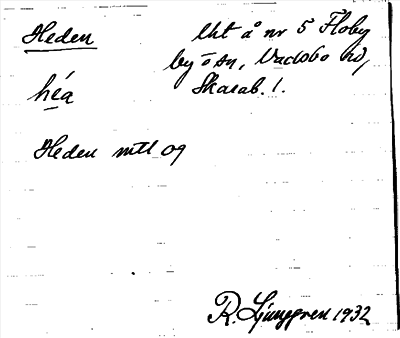 Heden
Uht å nr 5 Floby
by o sn, Vadsbo hd,
Skarab. l.
héa
Heden mtl 09
R. Ljunggren 1932